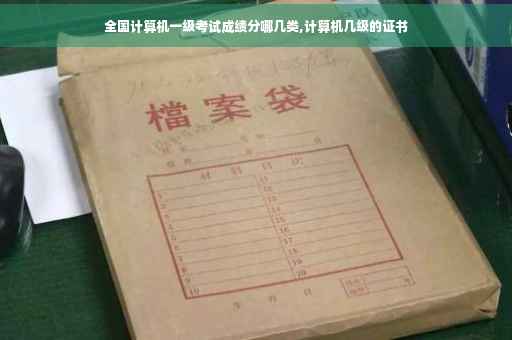 全国计算机一级考试成绩分哪几类,计算机几级的证书
檔案袋
材料目次
1 11
2 12
3 13
4 14
5 15
6 16
7 17
8 18
9 19
10 20
年 月 日